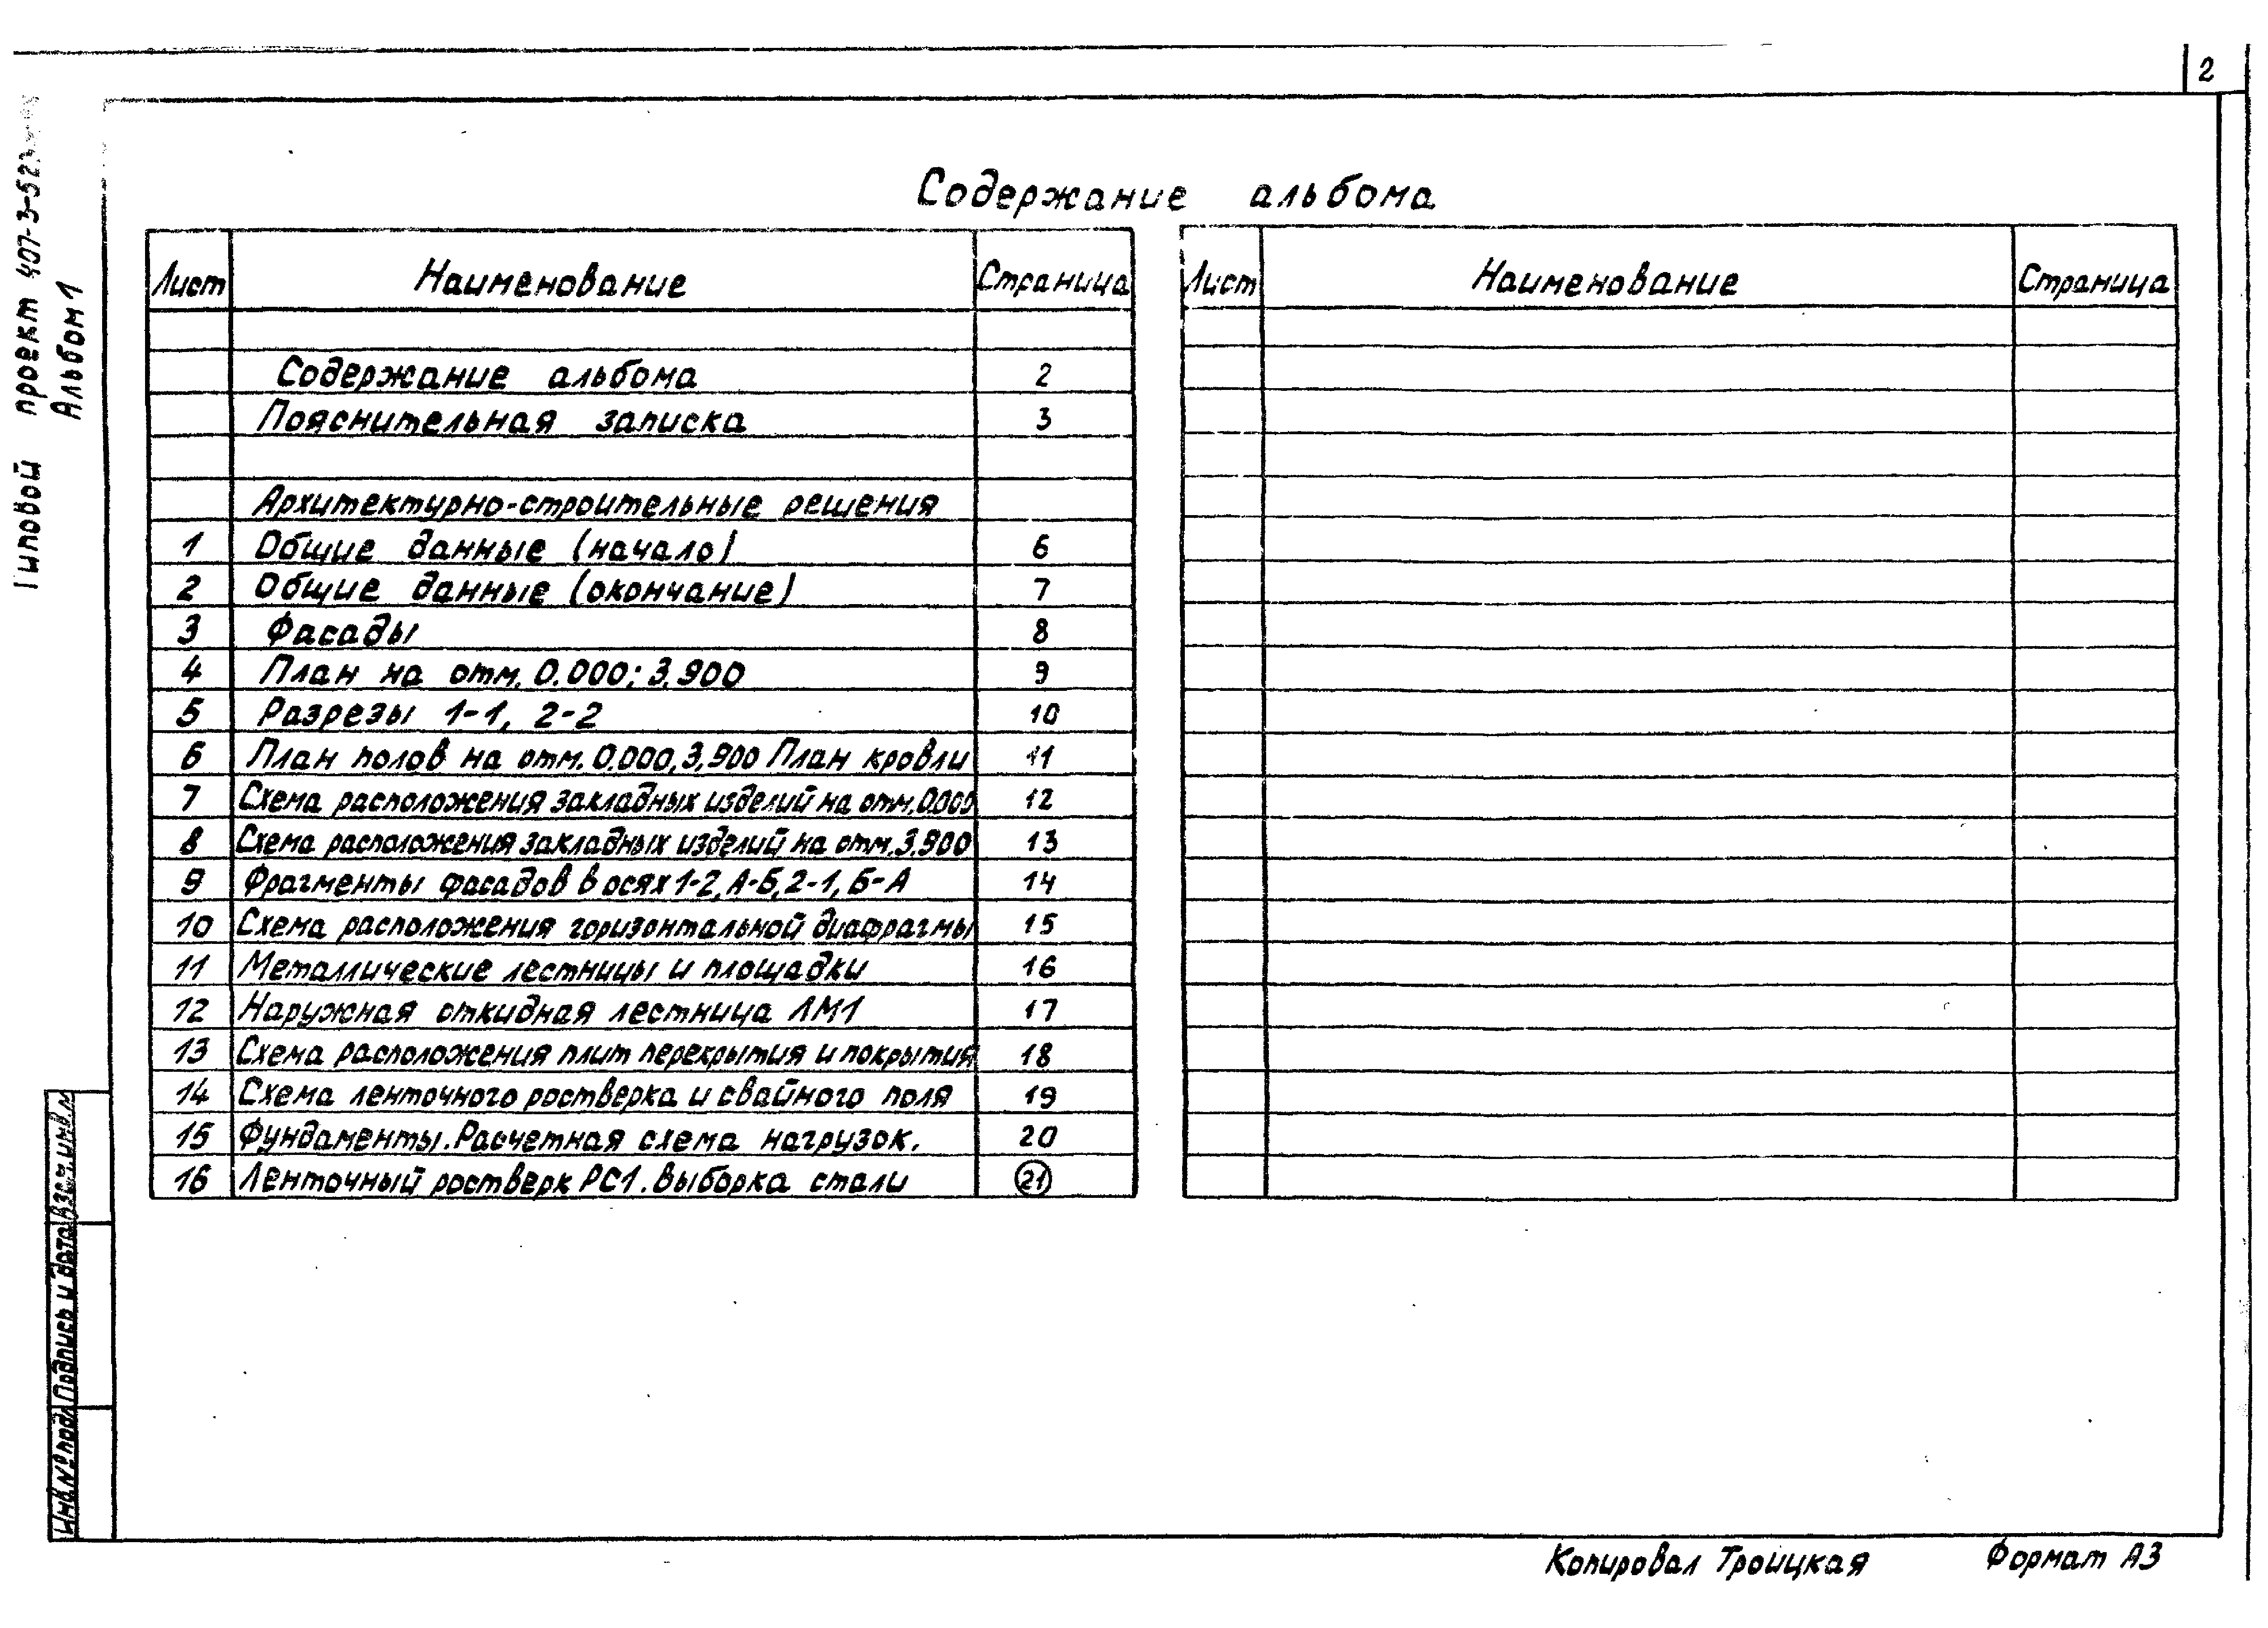 2
Типовой проект 407-3-523
Альбом 1
Содержание альбома
Лист Наименование Страница
Содержание альбома 2
Пояснительная записка 3
Архитектурно-строительные решения
1 Общие данные (начало) 6
2 Общие данные (окончание) 7
3 Фасады 8
4 План на отм. 0.000; 3.900 9
5 Разрезы 1-1, 2-2 10
6 План полов на отм. 0.000, 3,900 План кровли 11
7 Схема расположения закладных изделий на отм. 0.000 12
8 Схема расположения закладных изделий на отм. 3.900 13
9 Фрагменты фасадов в осях 1-2, А-Б, 2-1, Б-А 14
10 Схема расположения горизонтальной диафрагмы 15
11 Металлические лестницы и площадки 16
12 Наружная откидная лестница ЛМ1 17
13 Схема расположения плит перекрытия и покрытия 18
14 Схема ленточного ростверка и свайного поля 19
15 Фундаменты. Расчетная схема нагрузок. 20
16 Ленточный ростверк РС1. Выборка стали 21
Лист Наименование Страница
Инв.№ подл Подпись и дата Взам. инв.№
Копировал Троицкая Формат А3